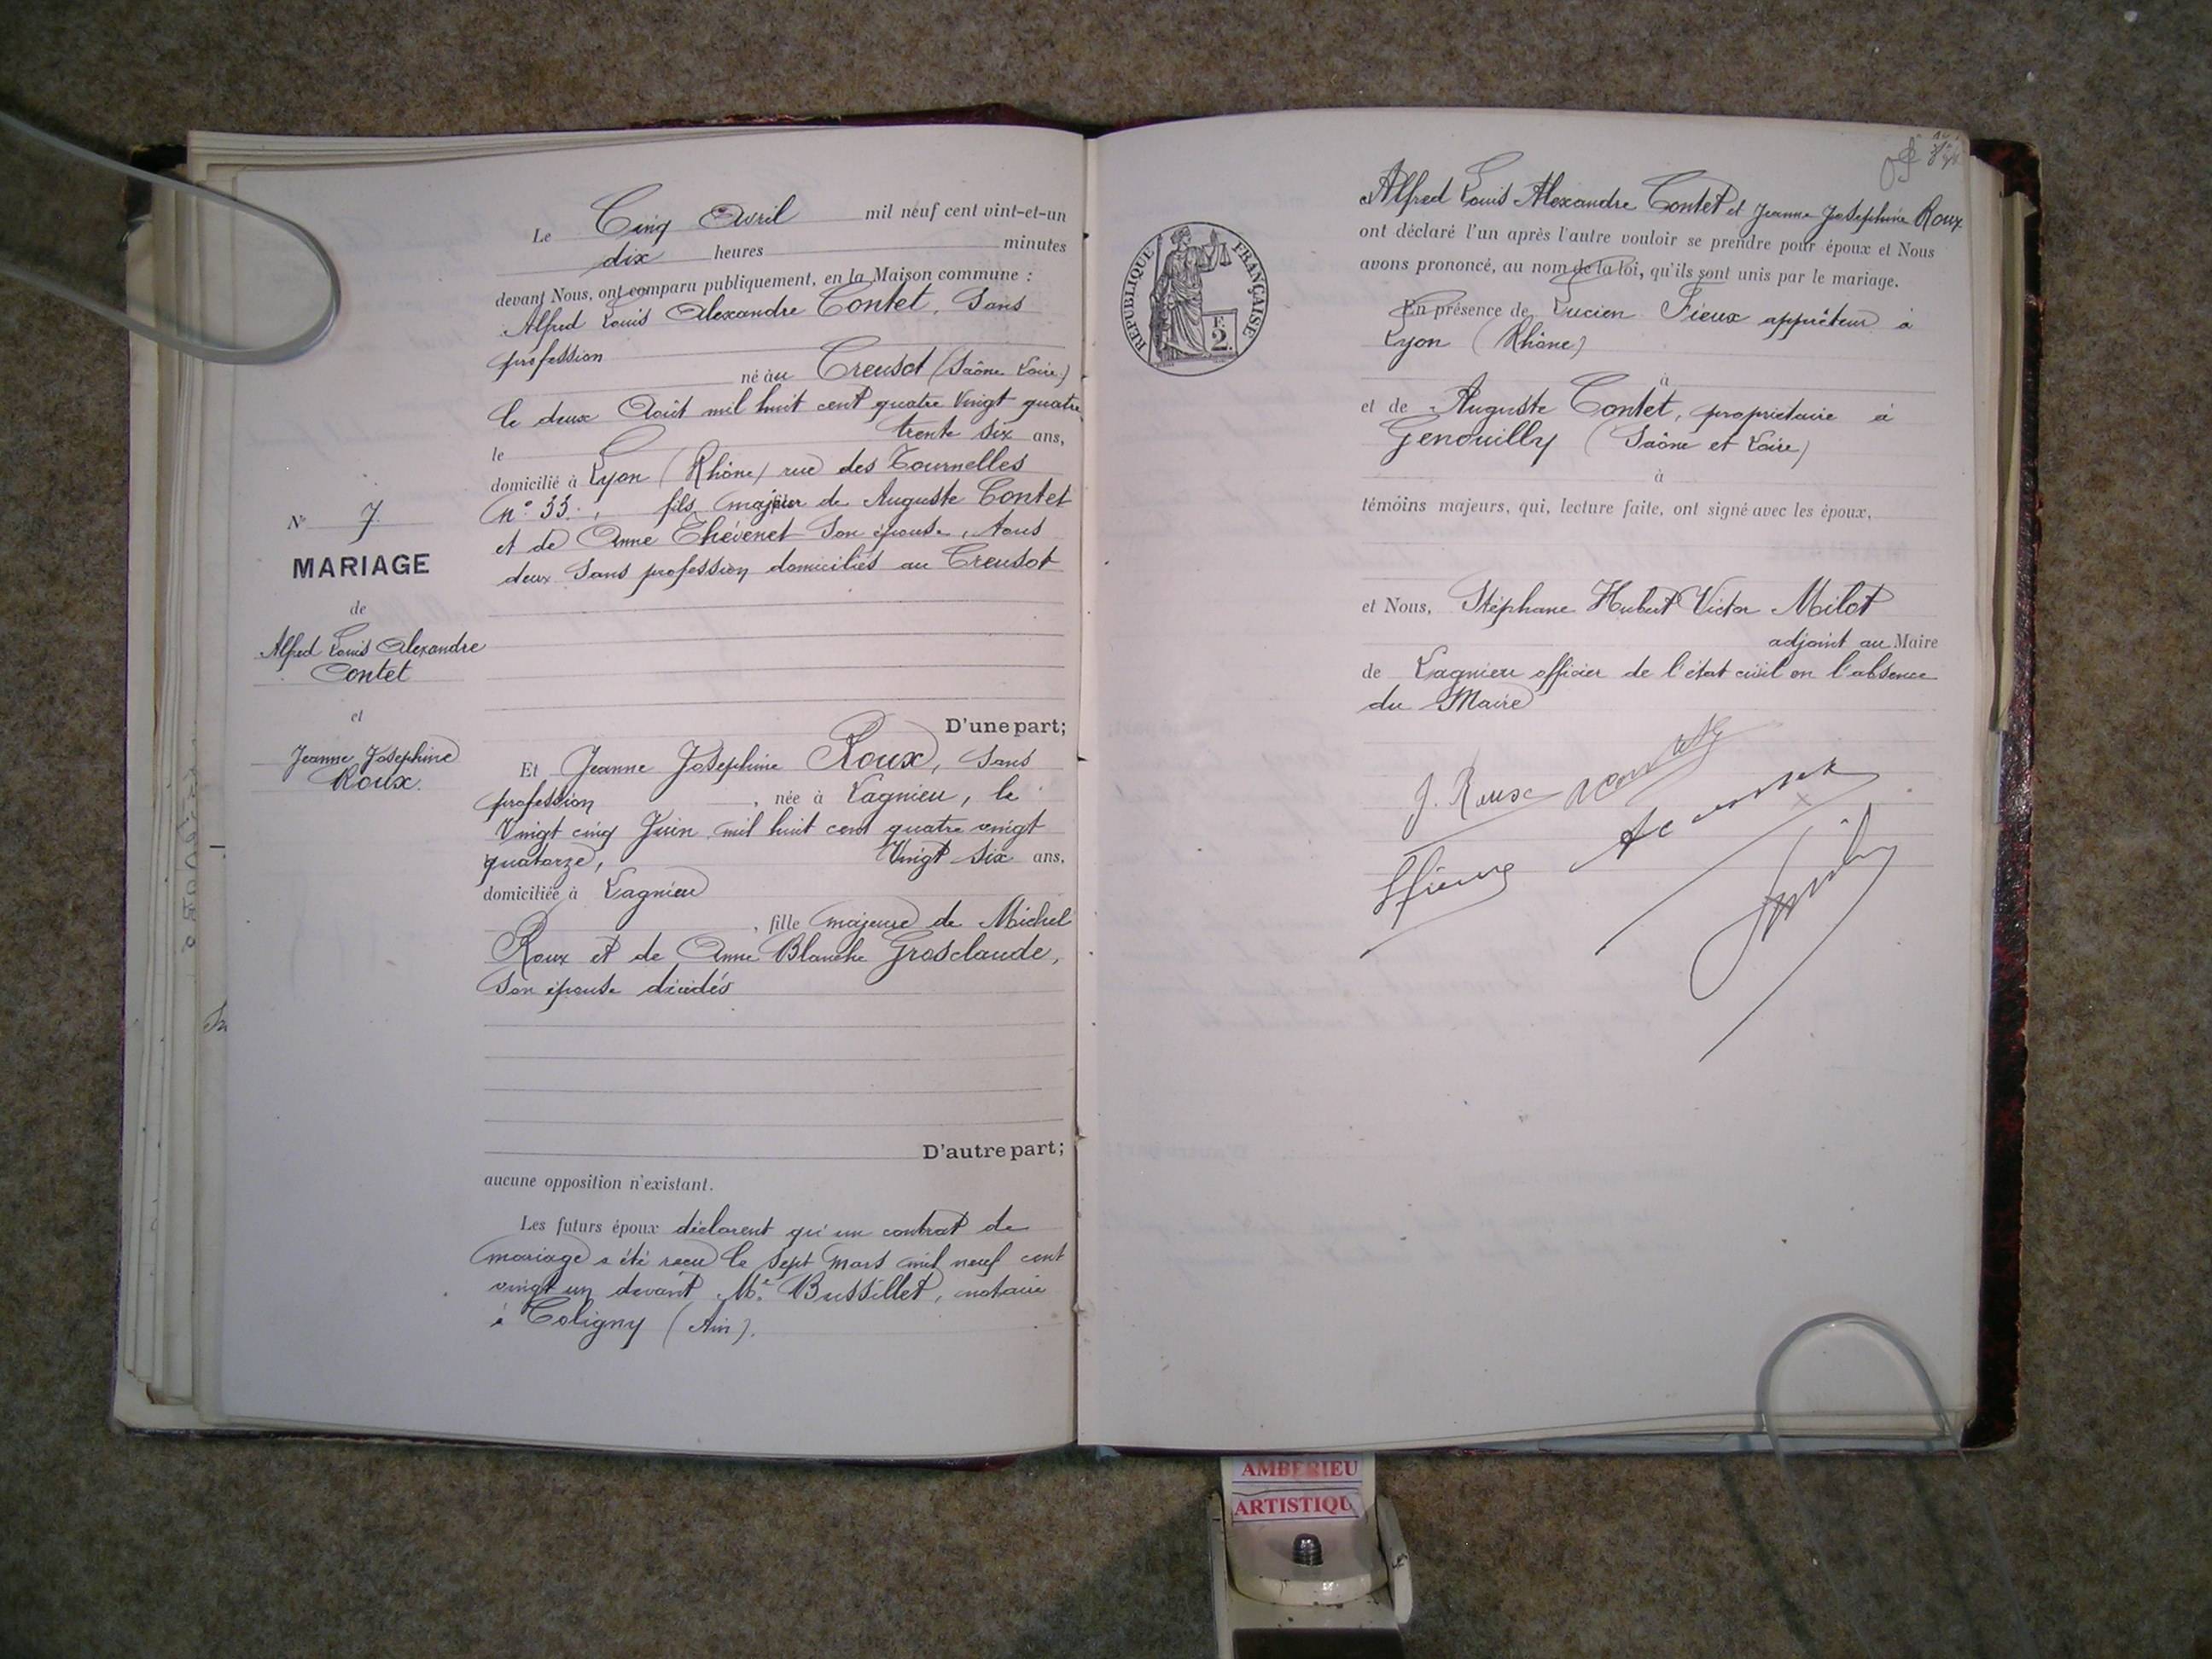 Le Cinq Avril mil neuf cent vint-et-un
dix heures minutes
devant Nous, ont comparu publiquement, en la Maison commune :
Alfred Louis Alexandre Contet, Sans
profession
né au Creusot (Saône Loire)
le deux Août mil huit cent quatre Vingt quatre
le trente six ans,
domicilié à Lyon (Rhône) rue des Tournelles
n° 33, fils majeur de Auguste Contet
et de Anne Thévenet Son épouse, tous
deux Sans profession domiciliés au Creusot
N° 7
MARIAGE
de
Alfred Louis Alexandre
Contet
et
Jeanne Joséphine
Roux.
D'une part;
Et Jeanne Joséphine Roux, Sans
profession, née à Lagnieu, le
Vingt cinq Juin mil huit cent quatre vingt
quatorze, Vingt Six ans,
domiciliée à Lagnieu
, fille majeure de Michel
Roux et de Anne Blanche Grosclaude,
Son épouse décédés
D'autre part;
aucune opposition n'existant.
Les futurs époux déclarent qu'un contrat de
mariage a été reçu le Sept Mars mil neuf cent
vingt un devant Me Bussillet, notaire
à Coligny (Ain).
RÉPUBLIQUE FRANÇAISE
F.
2.
Alfred Louis Alexandre Contet et Jeanne Joséphine Roux
ont déclaré l'un après l'autre vouloir se prendre pour époux et Nous
avons prononcé, au nom de la loi, qu'ils sont unis par le mariage.
En présence de Lucien Fieux apprêteur à
Lyon (Rhône)
à
et de Auguste Contet, propriétaire à
Genouilly (Saône et Loire)
à
témoins majeurs, qui, lecture faite, ont signé avec les époux,
et Nous, Stéphane Hubert Victor Milot
adjoint au Maire
de Lagnieu officier de l'état civil en l'absence
du Maire
J. Roux
AMBERIEU
ARTISTIQU